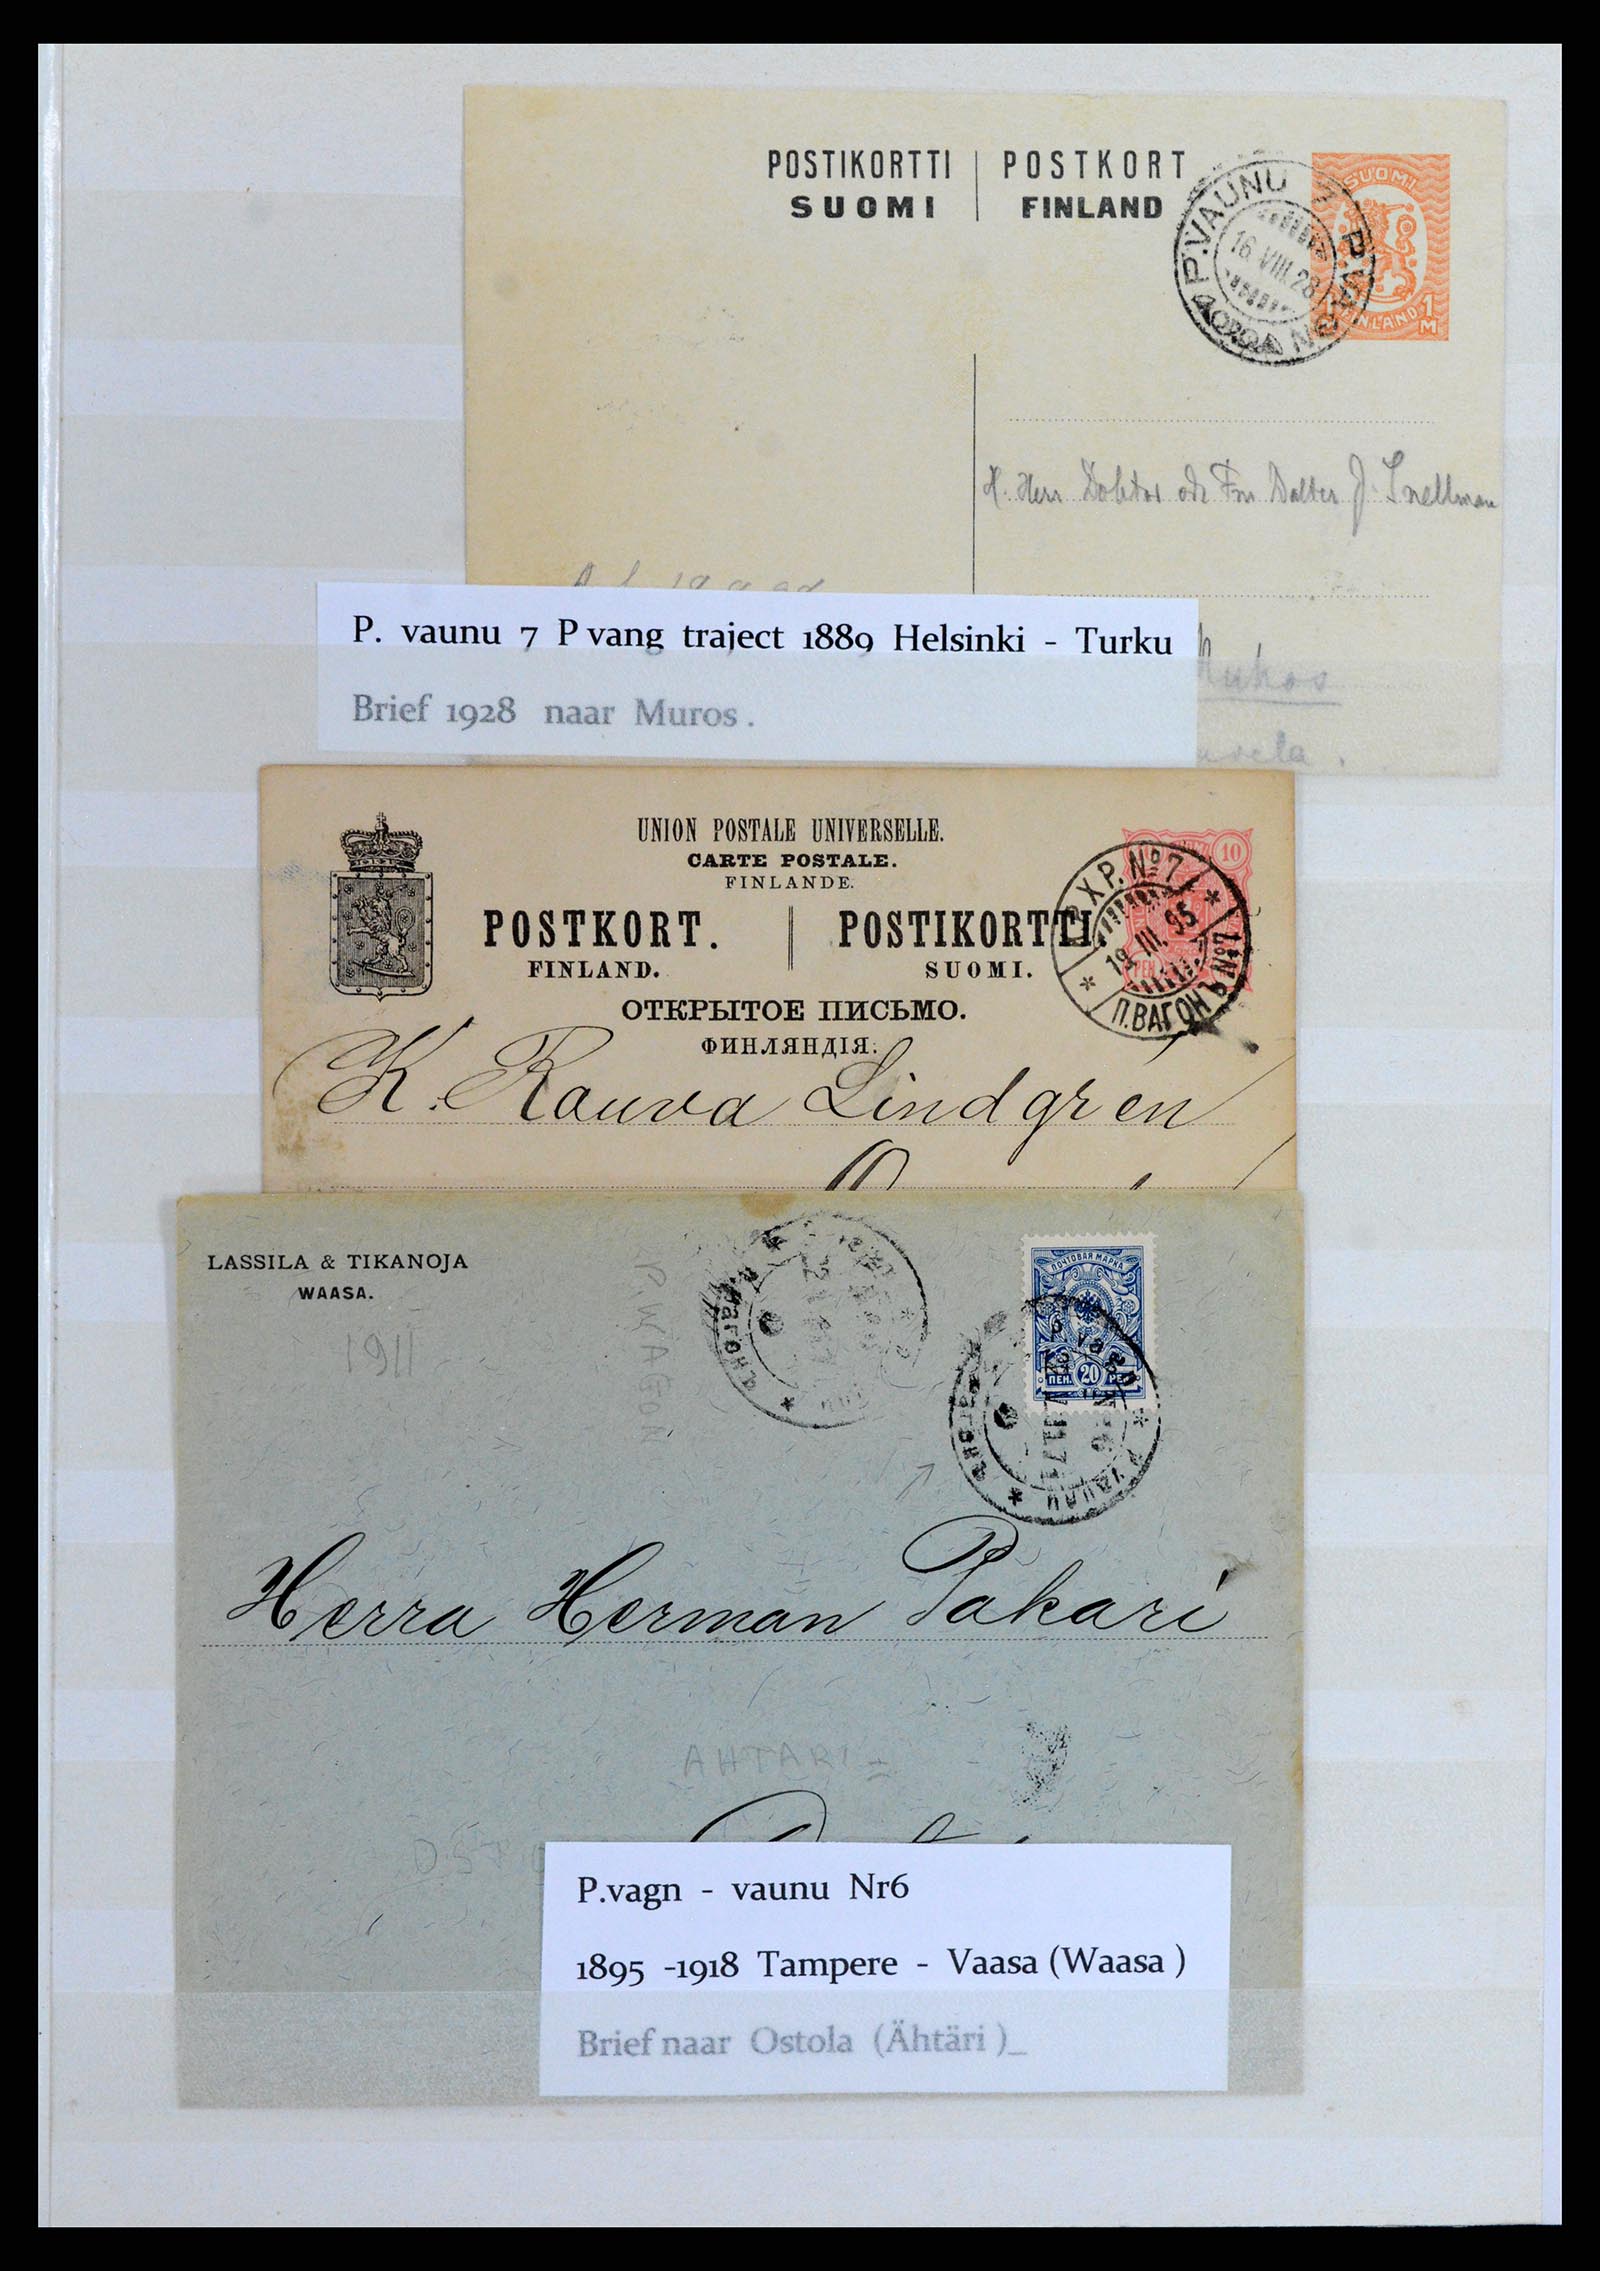 POSTIKORTTI | POSTKORT
SUOMI | FINLAND
SUOMI
FINLAND
1
M
P.VAUNU 7
P.VAGN
16.VIII.28
H. Herr Doktor
J. Snellman
P. vaunu 7 P vang traject 1889 Helsinki - Turku
Brief 1928 naar Muros.
UNION POSTALE UNIVERSELLE.
CARTE POSTALE.
FINLANDE.
POSTKORT. | POSTIKORTTI.
FINLAND. SUOMI.
ОТКРЫТОЕ ПИСЬМО.
ФИНЛЯНДІЯ.
10
K.P.X.P. № 7
19.III.95
П.ВАГОНЪ №7
K. Rauva Lindgrén
LASSILA & TIKANOJA
WAASA.
1911
P. WAGON
ПОЧТОВАЯ МАРКА
ПЕН. 20 PEN
Herra Herman Pakari
AHTARI
P.vagn - vaunu Nr6
1895 -1918 Tampere - Vaasa (Waasa )
Brief naar Ostola (Ähtäri )_